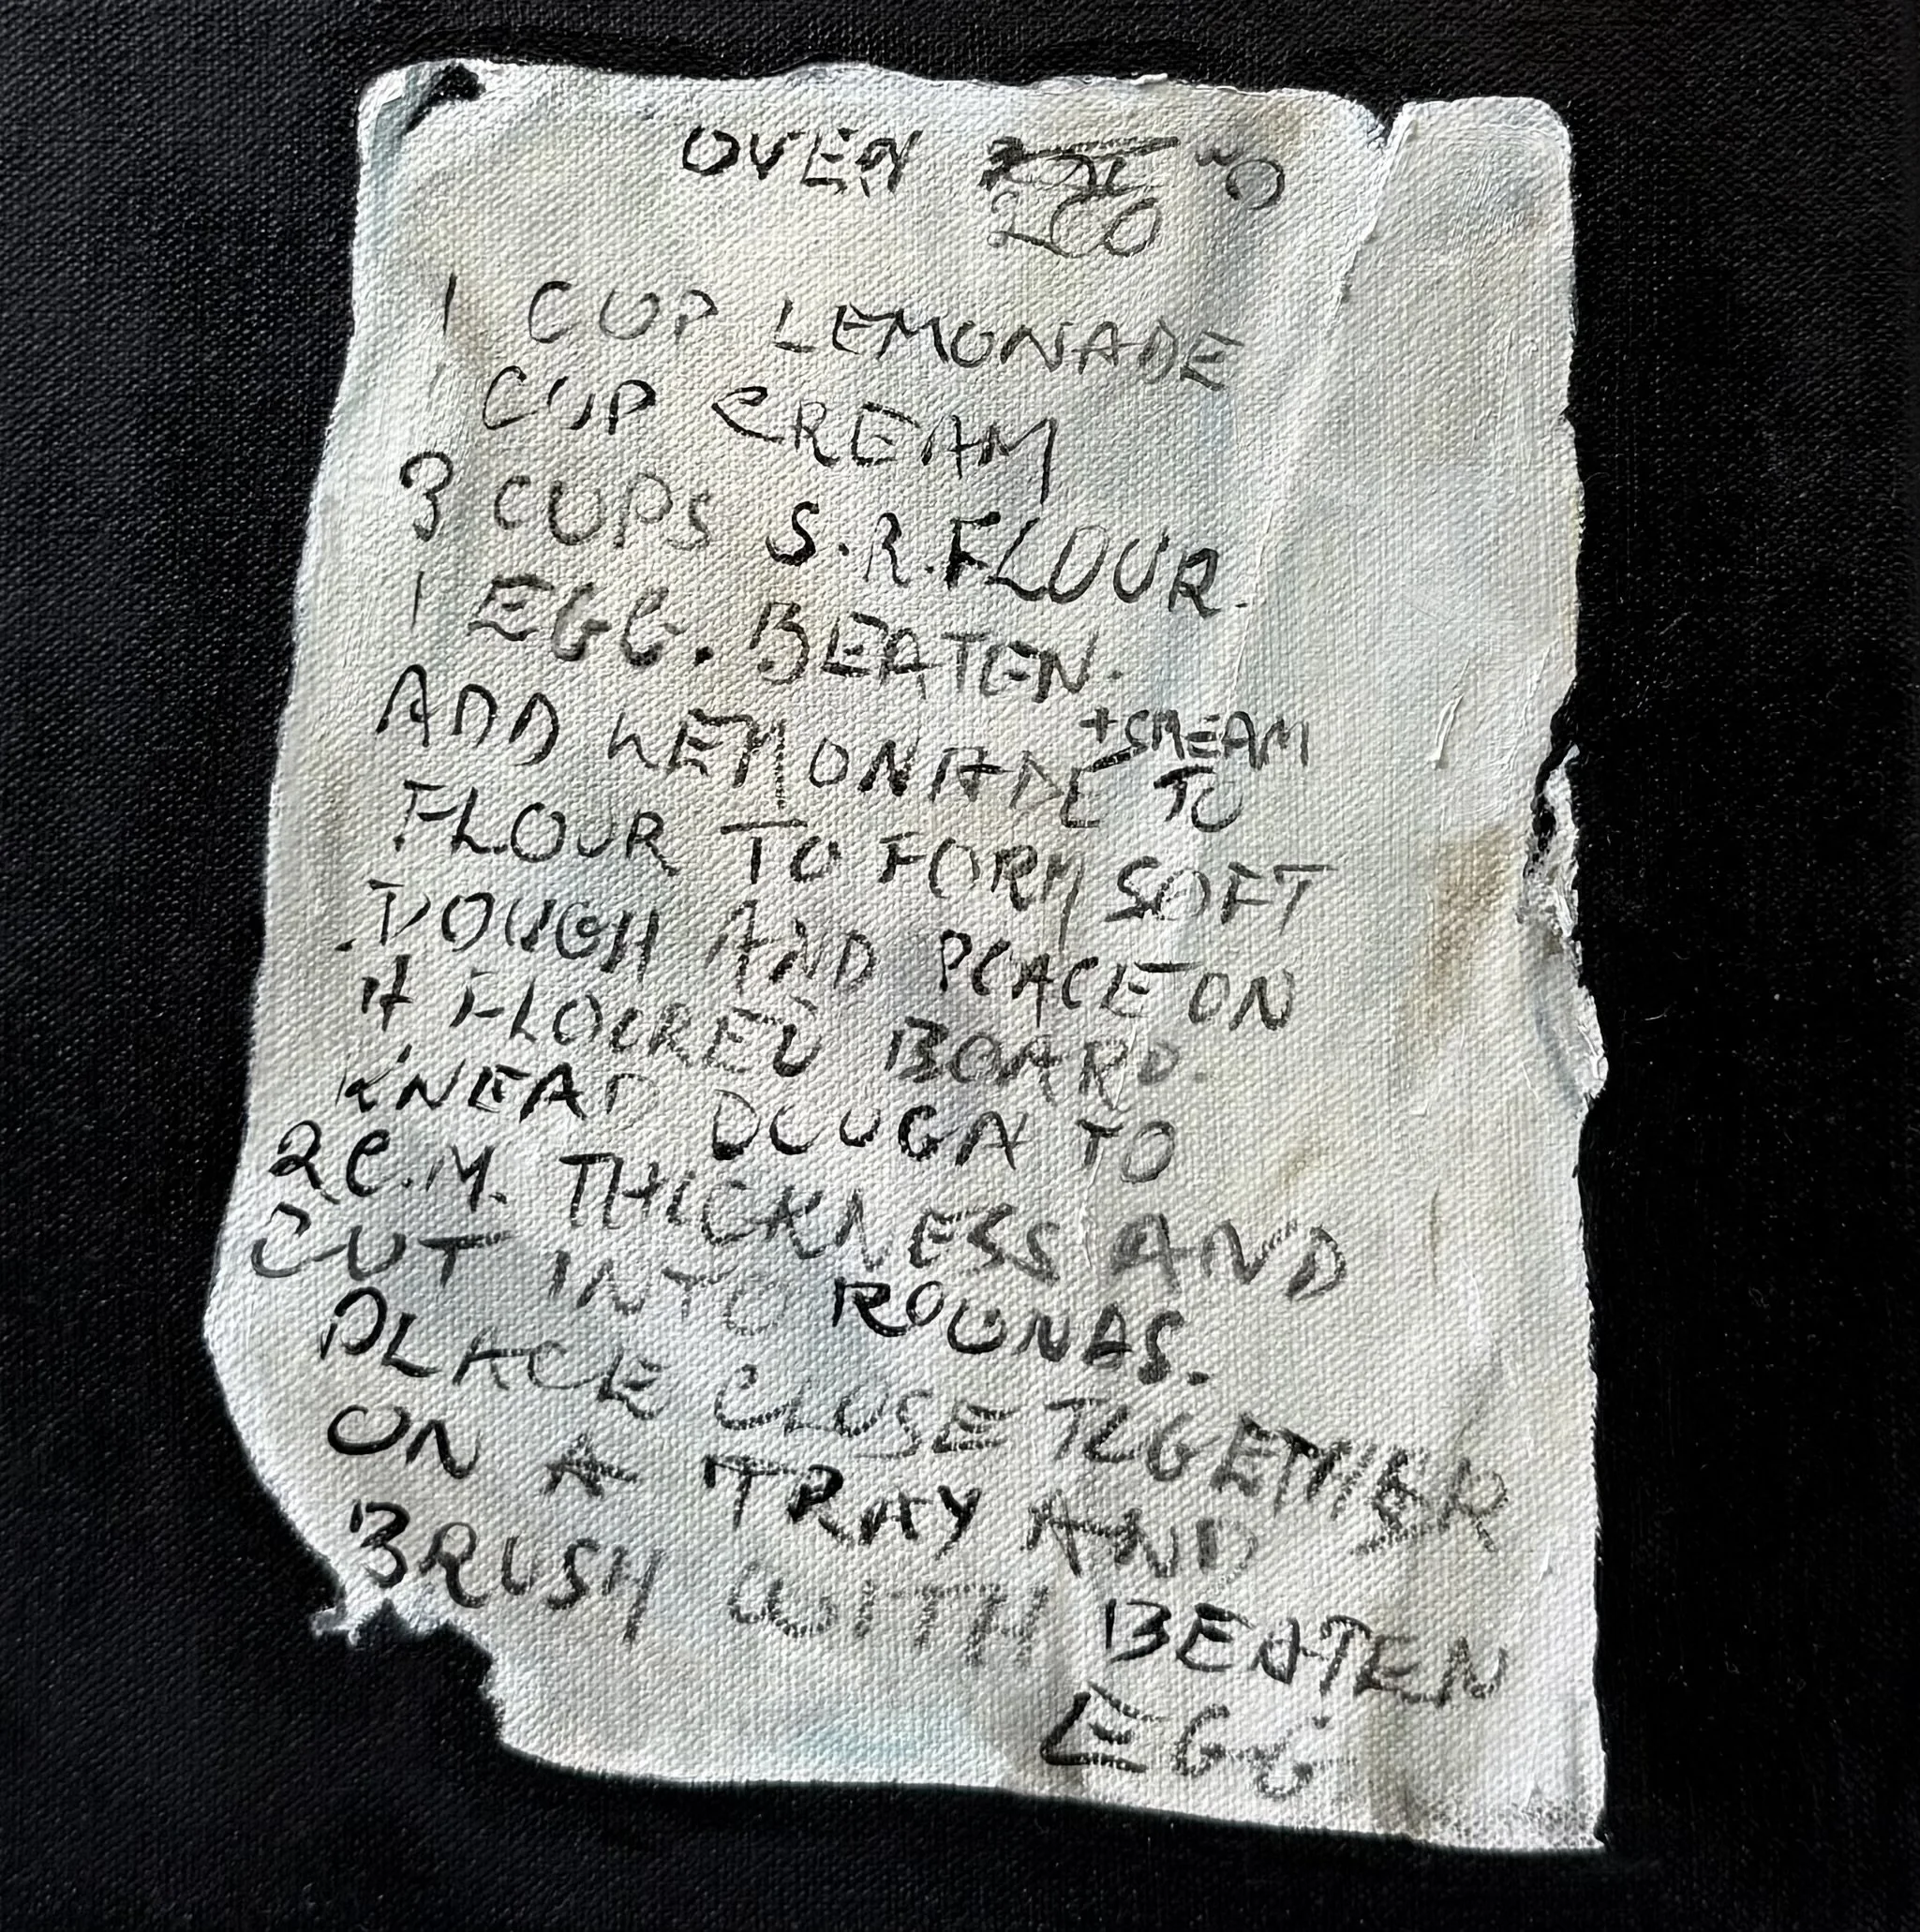 OVEN
200
1 CUP LEMONADE
1 CUP CREAM
3 CUPS S.R.FLOUR.
1 EGG. BEATEN.
ADD LEMONADE +CREAM TO
FLOUR TO FORM SOFT
DOUGH AND PLACE ON
A FLOURED BOARD.
KNEAD DOUGH TO
2C.M. THICKNESS AND
CUT INTO ROUNDS.
PLACE CLOSE TOGETHER
ON A TRAY AND
BRUSH WITH BEATEN
EGG